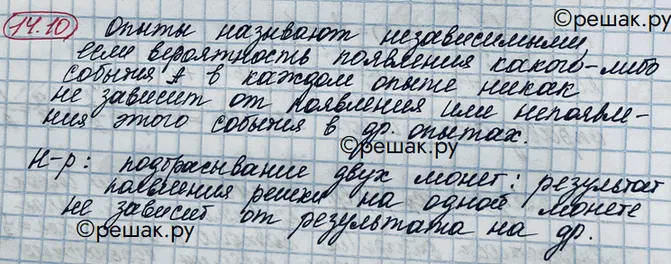 ©решак.ру
14.10 Опыты называют независимыми,
если вероятность появления какого-либо
события A в каждом опыте никак
не зависит от появления или непоявле-
ния этого события в др. опытах.
©решак.ру
Н-р: подбрасывание двух монет: результат
появления решки на одной монете
не зависит от результата на др.
©решак.ру